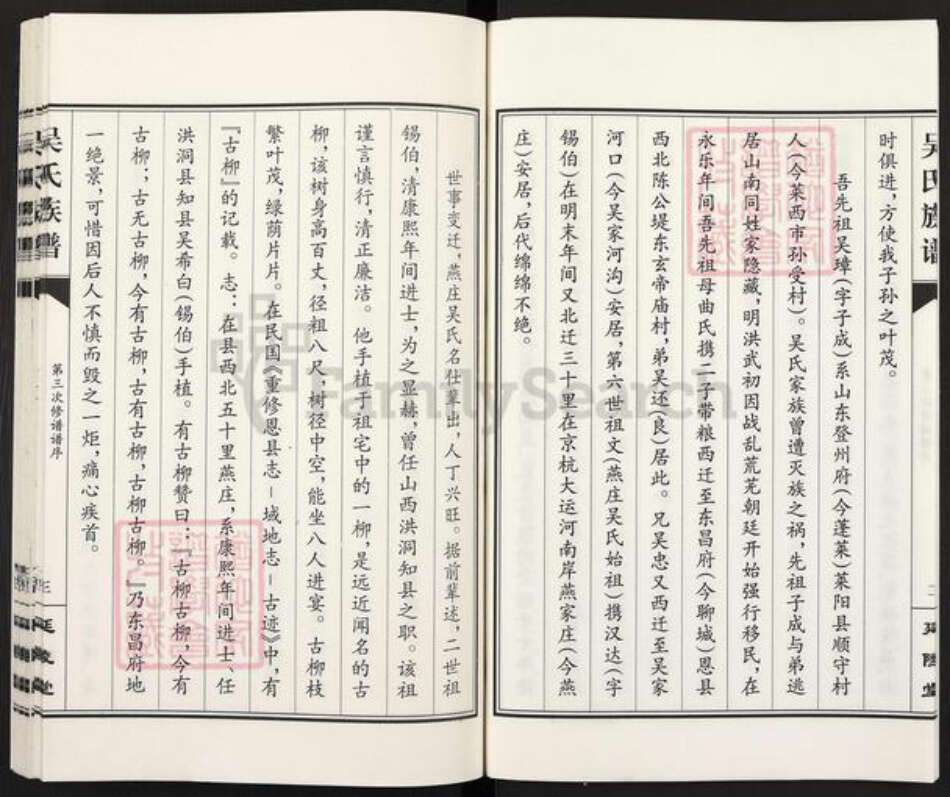 吴氏族谱
时俱进，方使我子孙之叶茂。
吾先祖吴璋（字子成）系山东登州府（今蓬莱）莱阳县顺守村
人（今莱西市孙受村）。吴氏家族曾遭灭族之祸，先祖子成与弟逃
居山南同姓家隐藏，明洪武初因战乱荒芜朝廷开始强行移民，在
永乐年间吾先祖母曲氏携二子带粮西迁至东昌府（今聊城）恩县
西北陈公堤东玄帝庙村，弟吴还（良）居此。兄吴忠又西迁至吴家
河口（今吴家河沟）安居，第六世祖文（燕庄吴氏始祖）携汉达（字
锡伯）在明末年间又北迁三十里在京杭大运河南岸燕家庄（今燕
庄）安居，后代绵绵不绝。
世事变迁，燕庄吴氏名仕辈出，人丁兴旺。据前辈述，二世祖
锡伯，清康熙年间进士，为之显赫，曾任山西洪洞知县之职。该祖
谨言慎行，清正廉洁。他手植于祖宅中的一柳，是远近闻名的古
柳，该树身高百丈，径祖八尺，树径中空，能坐八人进宴。古柳枝
繁叶茂，绿荫片片。在民国《重修恩县志－域地志－古迹》中，有
『古柳』的记载。志：在县西北五十里燕庄，系康熙年间进士、任
洪洞县知县吴希白（锡伯）手植。有古柳赞曰：『古柳古柳，今有
古柳；古无古柳，今有古柳，古有古柳，古柳古柳。』乃东昌府地
一绝景，可惜因后人不慎而毁之一炬，痛心疾首。
吴氏族谱
第三次修谱谱序
FamilySearch